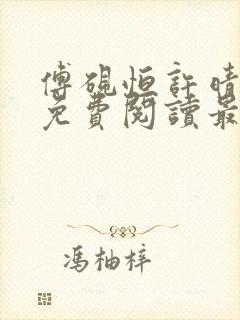 傅硯恒許晴
免費閱讀最
馮柚梓